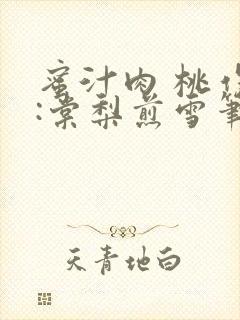 蜜汁肉桃作
:棠梨煎雪筆
天青地白